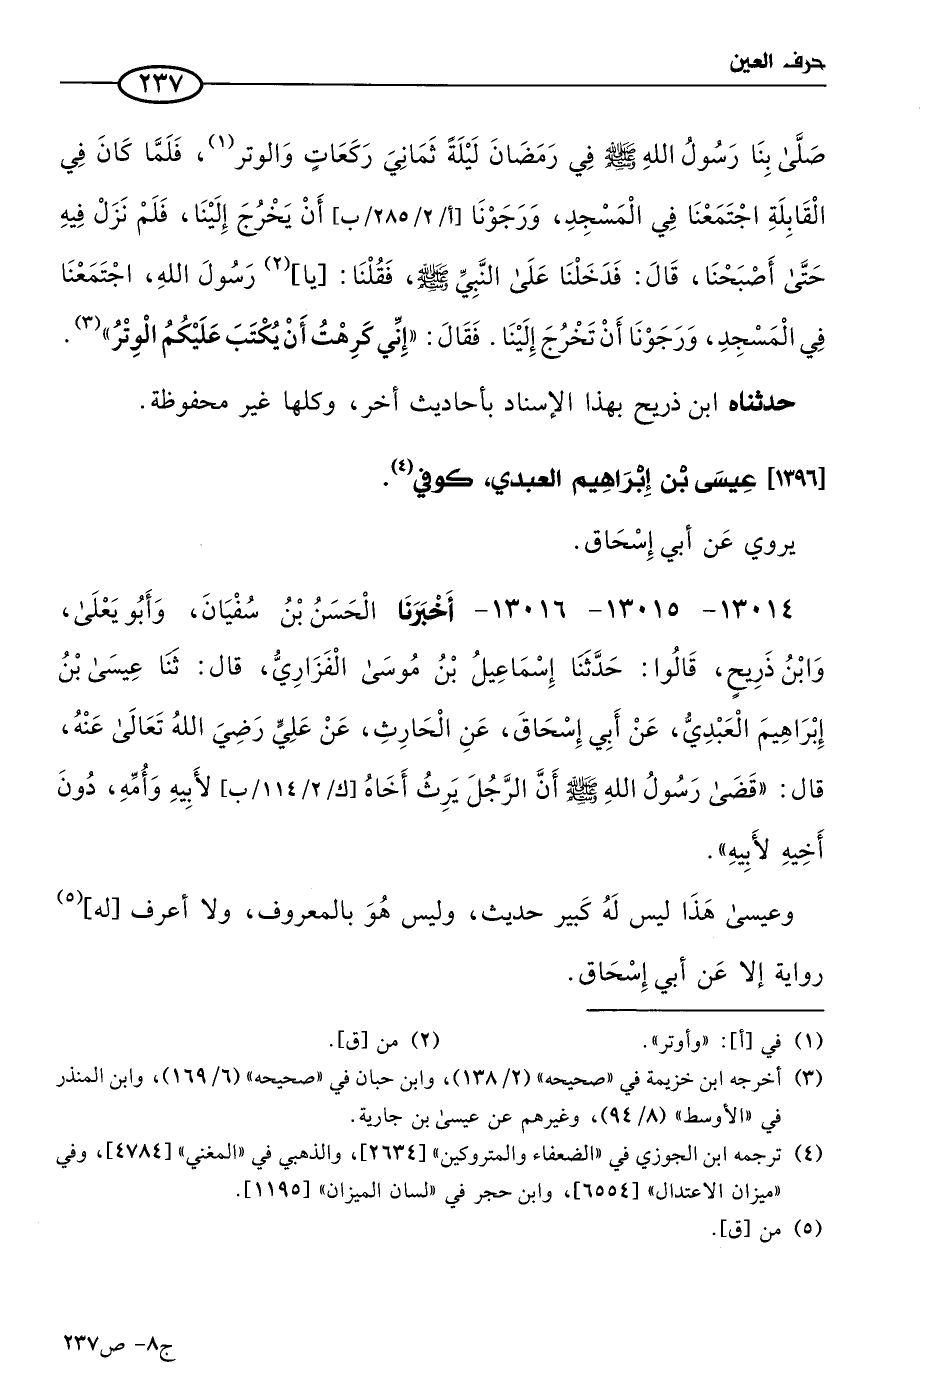 حرف العين
٢٣٧
صَلَّىٰ بِنَا رَسُولُ اللهِ ﷺ فِي رَمَضَانَ لَيْلَةً ثَمَانِيَ رَكَعَاتٍ وَالوتر(١)، فَلَمَّا كَانَ فِي
الْقَابِلَةِ اجْتَمَعْنَا فِي الْمَسْجِدِ، وَرَجَوْنَا [أ/٢/٢٨٥/ب] أَنْ يَخْرُجَ إِلَيْنَا، فَلَمْ نَزَلْ فِيهِ
حَتَّىٰ أَصْبَحْنَا، قَالَ: فَدَخَلْنَا عَلَىٰ النَّبِيِّ ﷺ، فَقُلْنَا: [يا](٢) رَسُولَ اللهِ، اجْتَمَعْنَا
فِي الْمَسْجِدِ، وَرَجَوْنَا أَنْ تَخْرُجَ إِلَيْنَا. فَقَالَ: «إِنِّي كَرِهْتُ أَنْ يُكْتَبَ عَلَيْكُمُ الْوِتْرُ»(٣).
حدثناه ابن ذريح بهذا الإسناد بأحاديث أخر، وكلها غير محفوظة.
[١٣٩٦] عِيسَى بْن إِبْرَاهِيم العبدي، كوفي(٤).
يروي عَن أبي إِسْحَاق.
١٣٠١٤- ١٣٠١٥- ١٣٠١٦- أَخْبَرَنَا الْحَسَنُ بْنُ سُفْيَانَ، وَأَبُو يَعْلَىٰ،
وَابْنُ ذَرِيحٍ، قَالُوا: حَدَّثَنَا إِسْمَاعِيلُ بْنُ مُوسَىٰ الْفَزَارِيُّ، قال: ثَنَا عِيسَىٰ بْنُ
إِبْرَاهِيمَ الْعَبْدِيُّ، عَنْ أَبِي إِسْحَاقَ، عَنِ الْحَارِثِ، عَنْ عَلِيٍّ رَضِيَ اللهُ تَعَالَىٰ عَنْهُ،
قال: «قَضَىٰ رَسُولُ اللهِ ﷺ أَنَّ الرَّجُلَ يَرِثُ أَخَاهُ [ك/٢/١١٤/ب] لأَبِيهِ وَأُمِّهِ، دُونَ
أَخِيهِ لأَبِيهِ».
وعيسىٰ هَذَا ليس لَهُ كَبير حديث، وليس هُوَ بالمعروف، ولا أعرف [له](٥)
رواية إلا عَن أبي إِسْحَاق.
(١) في [أ]: «وأوتر». (٢) من [ق].
(٣) أخرجه ابن خزيمة في «صحيحه» (١٣٨/٢)، وابن حبان في «صحيحه» (١٦٩/٦)، وابن المنذر
في «الأوسط» (٩٤/٨)، وغيرهم عن عيسىٰ بن جارية.
(٤) ترجمه ابن الجوزي في «الضعفاء والمتروكين» [٢٦٣٤]، والذهبي في «المغني» [٤٧٨٤]، وفي
«ميزان الاعتدال» [٦٥٥٤]، وابن حجر في «لسان الميزان» [١١٩٥].
(٥) من [ق].
ج٨- ص٢٣٧